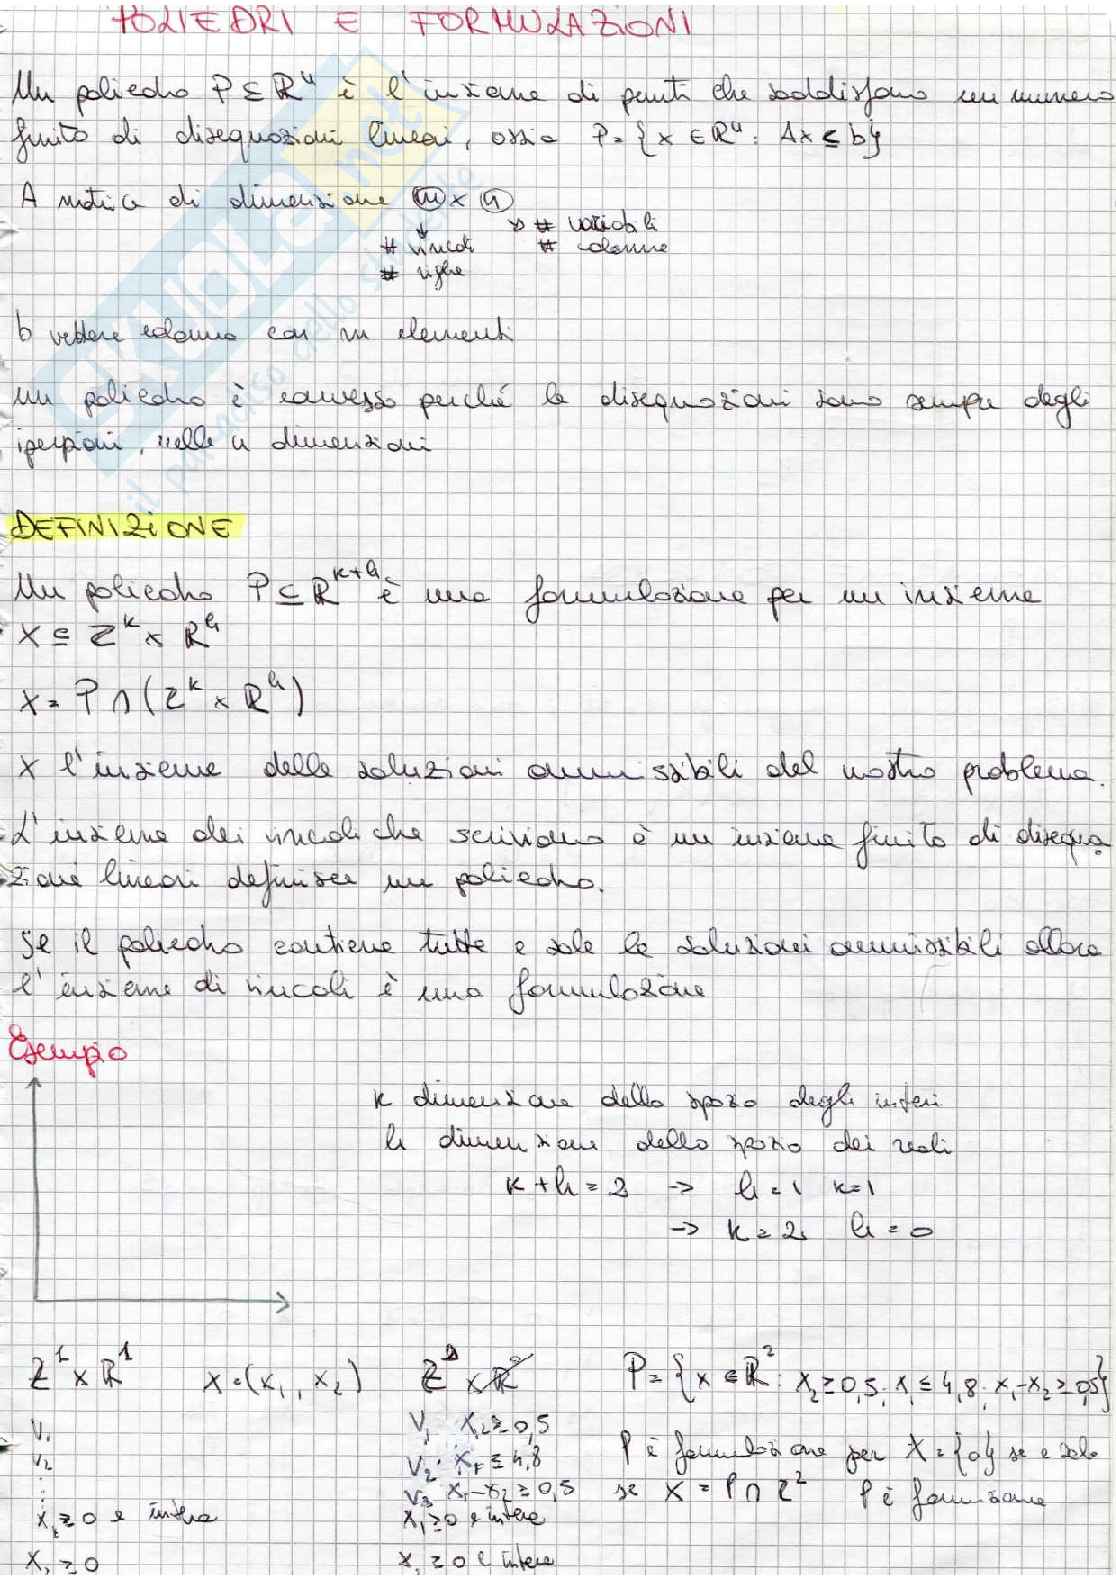 POLIEDRI E FORMULAZIONI
Un poliedro P ⊆ R^n è l'insieme di punti che soddisfano un numero
finito di disequazioni lineari, ossia P = {x ∈ R^n : Ax ≤ b}
A matrice di dimensione m x n
↓ → # variabili
# vincoli # colonne
# righe
b vettore colonna con m elementi
un poliedro è convesso perché le disequazioni sono sempre degli
iperpiani, nelle n dimensioni
DEFINIZIONE
Un poliedro P ⊆ R^{k+h} è una formulazione per un insieme
X ⊆ Z^k x R^h
X = P ∩ (Z^k x R^h)
X l'insieme delle soluzioni ammissibili del nostro problema.
L'insieme dei vincoli che scriviamo è un insieme finito di disequa
zioni lineari definisce un poliedro.
Se il poliedro contiene tutte e sole le soluzioni ammissibili allora
l'insieme di vincoli è una formulazione
Esempio
k dimensione dello spazio degli interi
h dimensione dello spazio dei reali
k + h = 2 → h = 1 k = 1
→ k = 2 h = 0
Z^1 x R^1 X = (x₁, x₂) Z^2 x R P = {x ∈ R^2 : x₂ ≥ 0,5; x₁ ≤ 4,8; x₁-x₂ ≥ 0,5}
V₁ V₁ x₂ ≥ 0,5
V₂ V₂: x₁ ≤ 4,8 P è formulazione per X = {0} se e solo
⋮ V₃ x₁-x₂ ≥ 0,5 se X = P ∩ Z^2 P è
≥ 0 e intera x₁ ≥ 0 e intera
≥ 0 ≥ 0 e intera